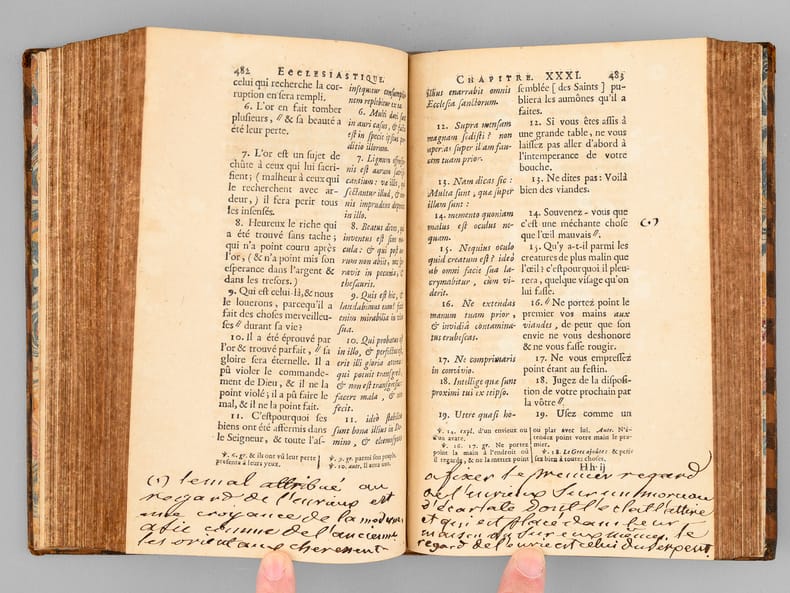 482 ECCLESIASTIQUE.
celui qui recherche la cor-
ruption en ſera rempli.
6. L'or en fait tomber
pluſieurs, // & ſa beauté a
été leur perte.
7. L'or eſt un ſujet de
chûte à ceux qui lui ſacri-
fient; ( malheur à ceux qui
le recherchent avec ar-
deur,) il fera perir tous
les inſenſés.
8. Heureux le riche qui
a été trouvé ſans tache;
qui n'a point couru après
l'or, (& n'a point mis ſon
eſperance dans l'argent &
dans les treſors.)
9. Qui eſt celui-là, & nous
le louerons, parcequ'il a
fait des choſes merveilleu-
ſes // durant ſa vie?
10. Il a été éprouvé par
l'or & trouvé parfait, // ſa
gloire ſera éternelle. Il a
pû violer le commande-
ment de Dieu, & il ne l'a
point violé; il a pû faire le
mal, & il ne l'a point fait.
11. C'eſtpourquoi ſes
biens ont été affermis dans
le Seigneur, & toute l'aſ-
inſequitur conſumptionem
nem replebitur ex ea.
6. Multi dati ſunt
in auri caſus, & facta
eſt in ſpecie ipſius per-
ditio illorum.
7. Lignum offenſio-
nis eſt aurum ſacrifi-
cantium: væ illis, qui
ſectantur illud, & om-
nis imprudens deperiet
in illo.
8. Beatus dives, qui
inventus eſt ſine ma-
cula: & qui poſt au-
rum non abiit, nec ſpe-
ravit in pecunia, &
theſauris.
9. Quis eſt hic, &
laudabimus eum? fecit
enim mirabilia in vita
ſua.
10. Qui probatus eſt
in illo, & perfectus eſt,
erit illi gloria æterna:
qui potuit tranſgredi,
& non eſt tranſgreſſus:
facere mala, & non
fecit.
11. ideò ſtabilita
ſunt bona illius in Do-
mino, & eleemoſynas
℣. 6. gr. & ils ont vû leur perte
preſente à leurs yeux.
℣. 9. gr. parmi ſon peuple.
℣. 10. autr. Il aura une.
(1) le mal attribué au
regard de l'envieux est
une croyance de la moderne
asie comme de l'ancienne.
les orientaux cherchent
CHAPITRE XXXI. 483
illius enarrabit omnis
Eccleſia ſanctorum.
12. Supra menſam
magnam ſediſti? non
aperias ſuper illam fau-
cem tuam prior.
13. Nam dicas ſic:
Multa ſunt, quæ ſuper
illam ſunt:
14. memento quoniam
malus eſt oculus ne-
quam.
15. Nequius oculo
quid creatum eſt? ideò
ab omni facie ſua la-
crymabitur, cùm vi-
derit.
16. Ne extendas
manum tuam prior,
& invidiâ contamina-
tus erubeſcas.
17. Ne comprimaris
in convivio.
18. Intellige quæ ſunt
proximi tui ex teipſo.
19. Utere quaſi ho-
ſemblée [ des Saints ] pu-
bliera les aumônes qu'il a
faites.
12. Si vous êtes aſſis à
une grande table, ne vous
laiſſez pas aller d'abord à
l'intemperance de votre
bouche.
13. Ne dites pas: Voilà
bien des viandes.
14. Souvenez-vous que
c'eſt une méchante choſe
que l'œil mauvais //.
(1)
15. Qu'y a-t-il parmi les
creatures de plus malin que
l'œil? c'eſtpourquoi il pleu-
rera, quelque viſage qu'on
lui faſſe.
16. // Ne portez point le
premier vos mains aux
viandes, de peur que ſon
envie ne vous deshonore
& ne vous faſſe rougir.
17. Ne vous empreſſez
point étant au feſtin.
18. Jugez de la diſpoſi-
tion de votre prochain par
la vôtre //.
19. Uſez comme un
℣. 14. expl. d'un envieux ou
d'un avare.
℣. 16. 17. gr. Ne portez
point la main à l'endroit où
il regarde, & ne la mettez point
ou plat avec lui. Autr. N'é-
tendez point votre main le pre-
mier.
℣. 18. Le Grec ajoûte: & penſez
bien à toutes choſes.
Hh ij
a fixer le premier regard
de l'envieux sur un morceau
d'écarlate dont l'éclat l'attire
et qui est placé dans leur
maison ou sur eux mêmes. le
regard de l'envie est celui du serpent.